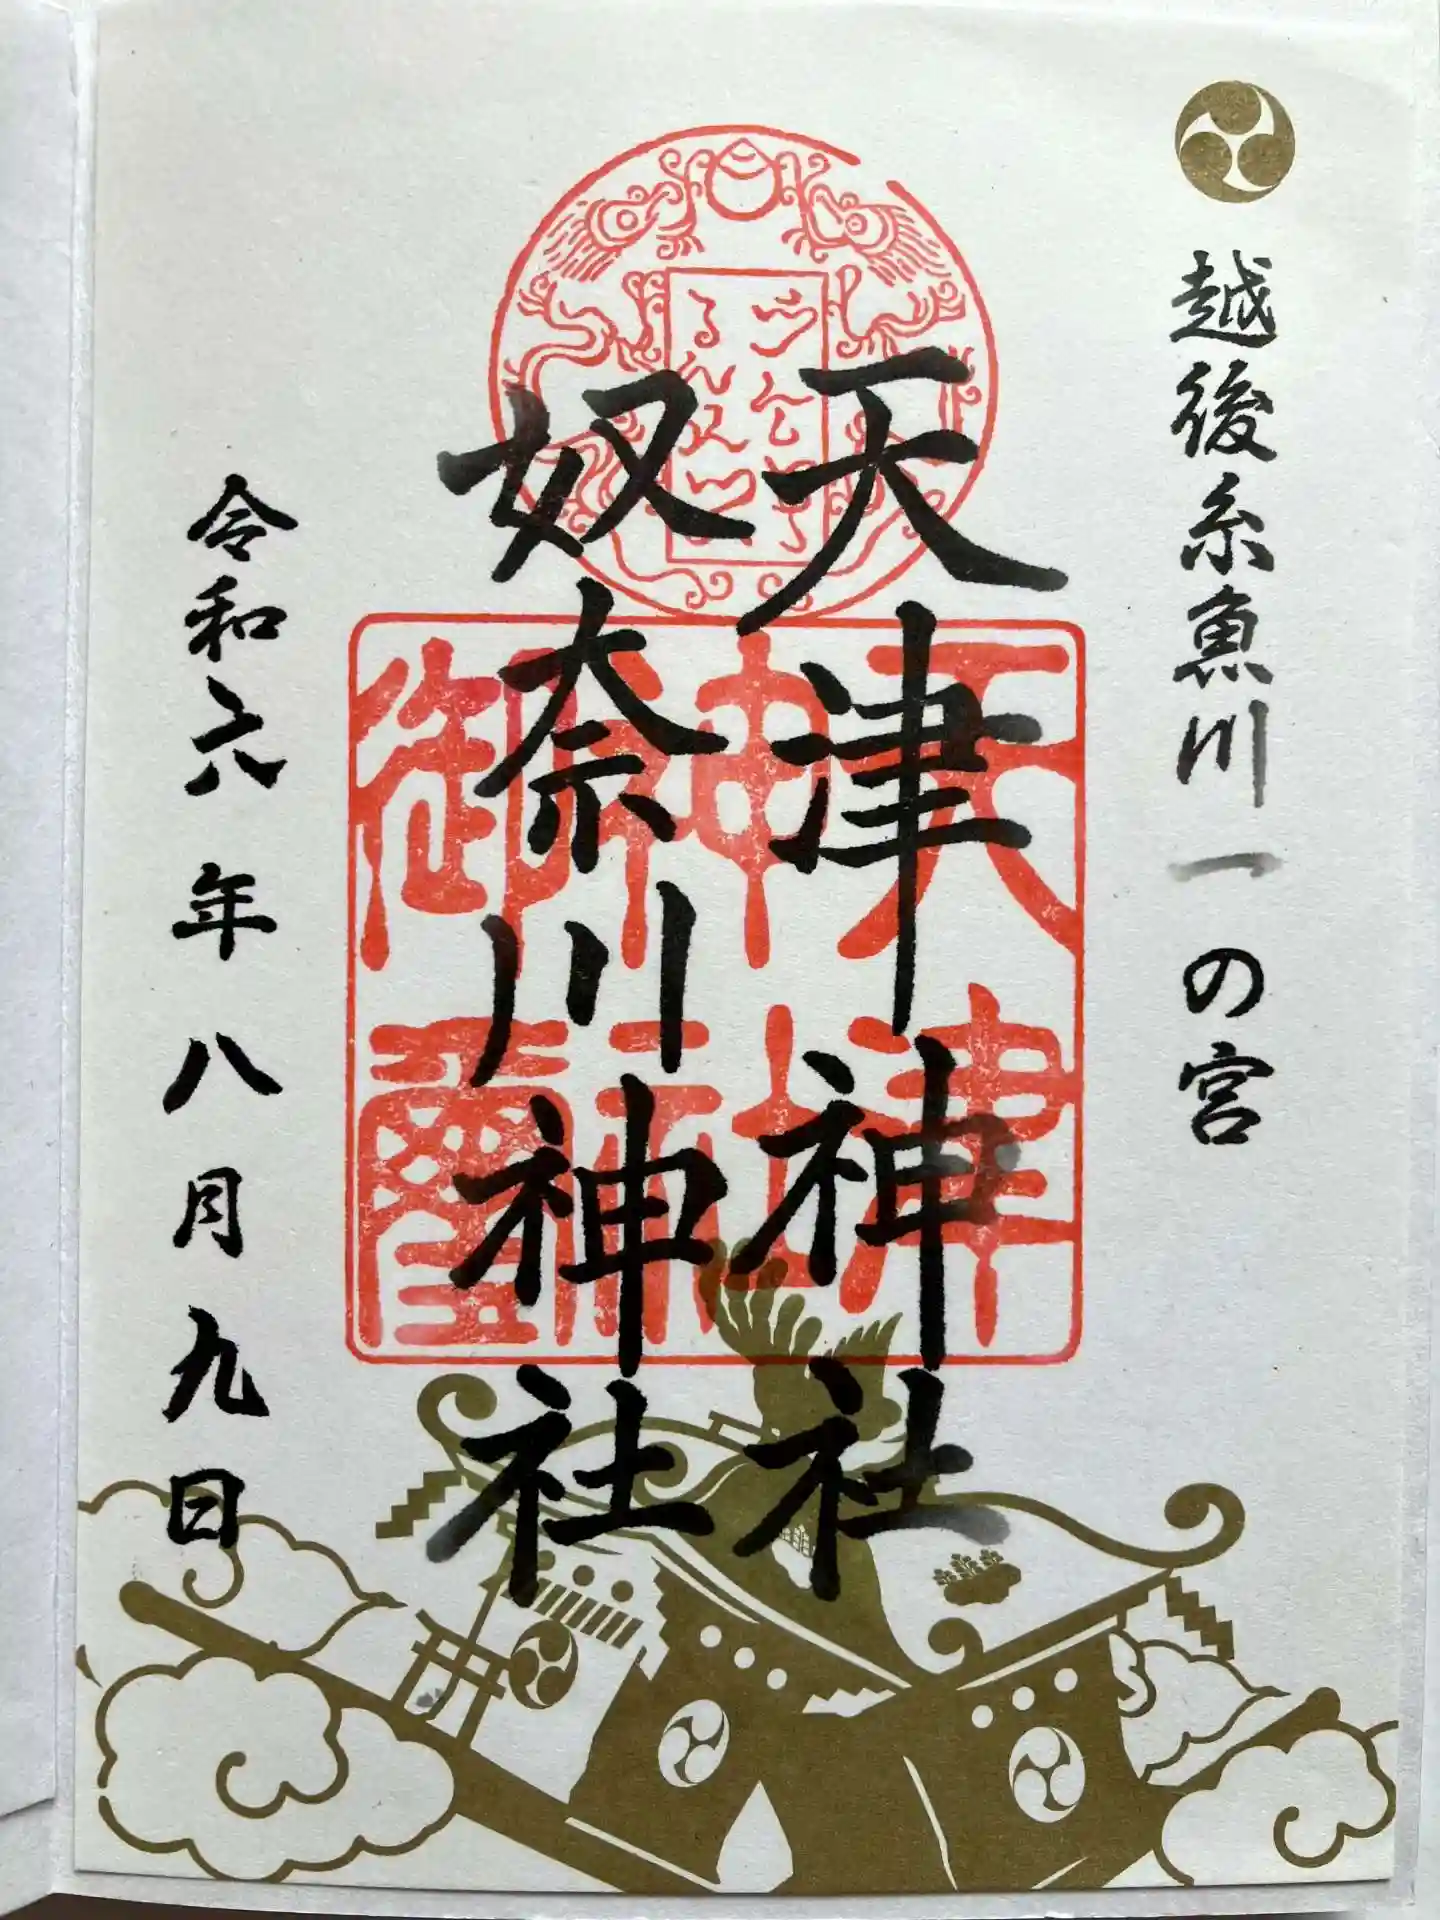 越後糸魚川一の宮
天津神社
奴奈川神社
令和六年八月九日
天津
神社
御璽